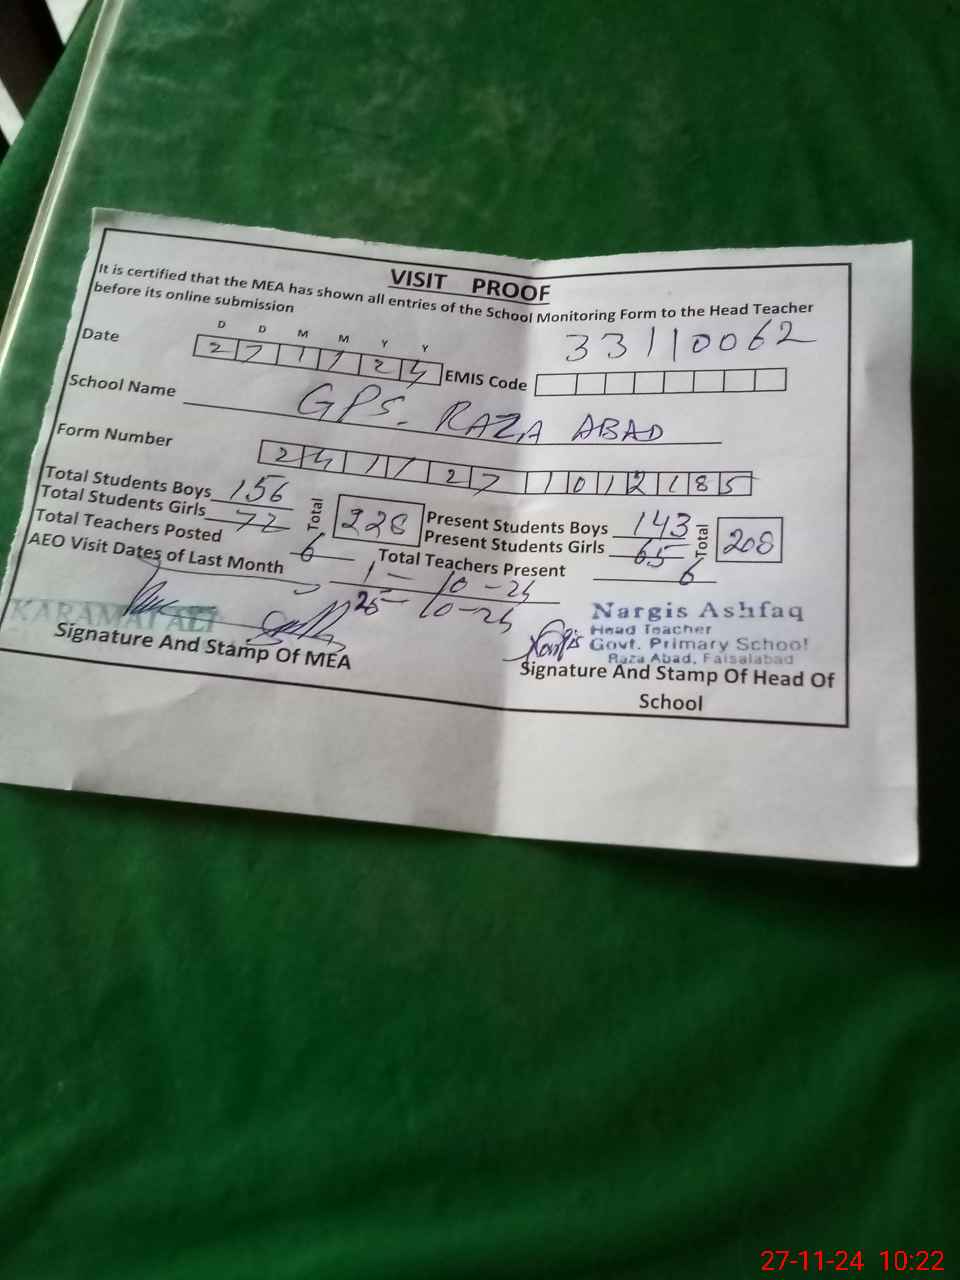 VISIT PROOF
It is certified that the MEA has shown all entries of the School Monitoring Form to the Head Teacher
before its online submission
33110062
D D M M Y Y
Date 271124 EMIS Code
School Name GPS. RAZA ABAD
Form Number 2411271012185
Total Students Boys 156 Total 228 Present Students Boys 143 Total 208
Total Students Girls 72 Present Students Girls 65
Total Teachers Posted 6 Total Teachers Present 6
AEO Visit Dates of Last Month 1-10-24
25-10-24
KARAMAT ALI
Nargis Ashfaq
Head Teacher
Govt. Primary School
Raza Abad, Faisalabad
Signature And Stamp Of MEA
Signature And Stamp Of Head Of
School
27-11-24 10:22